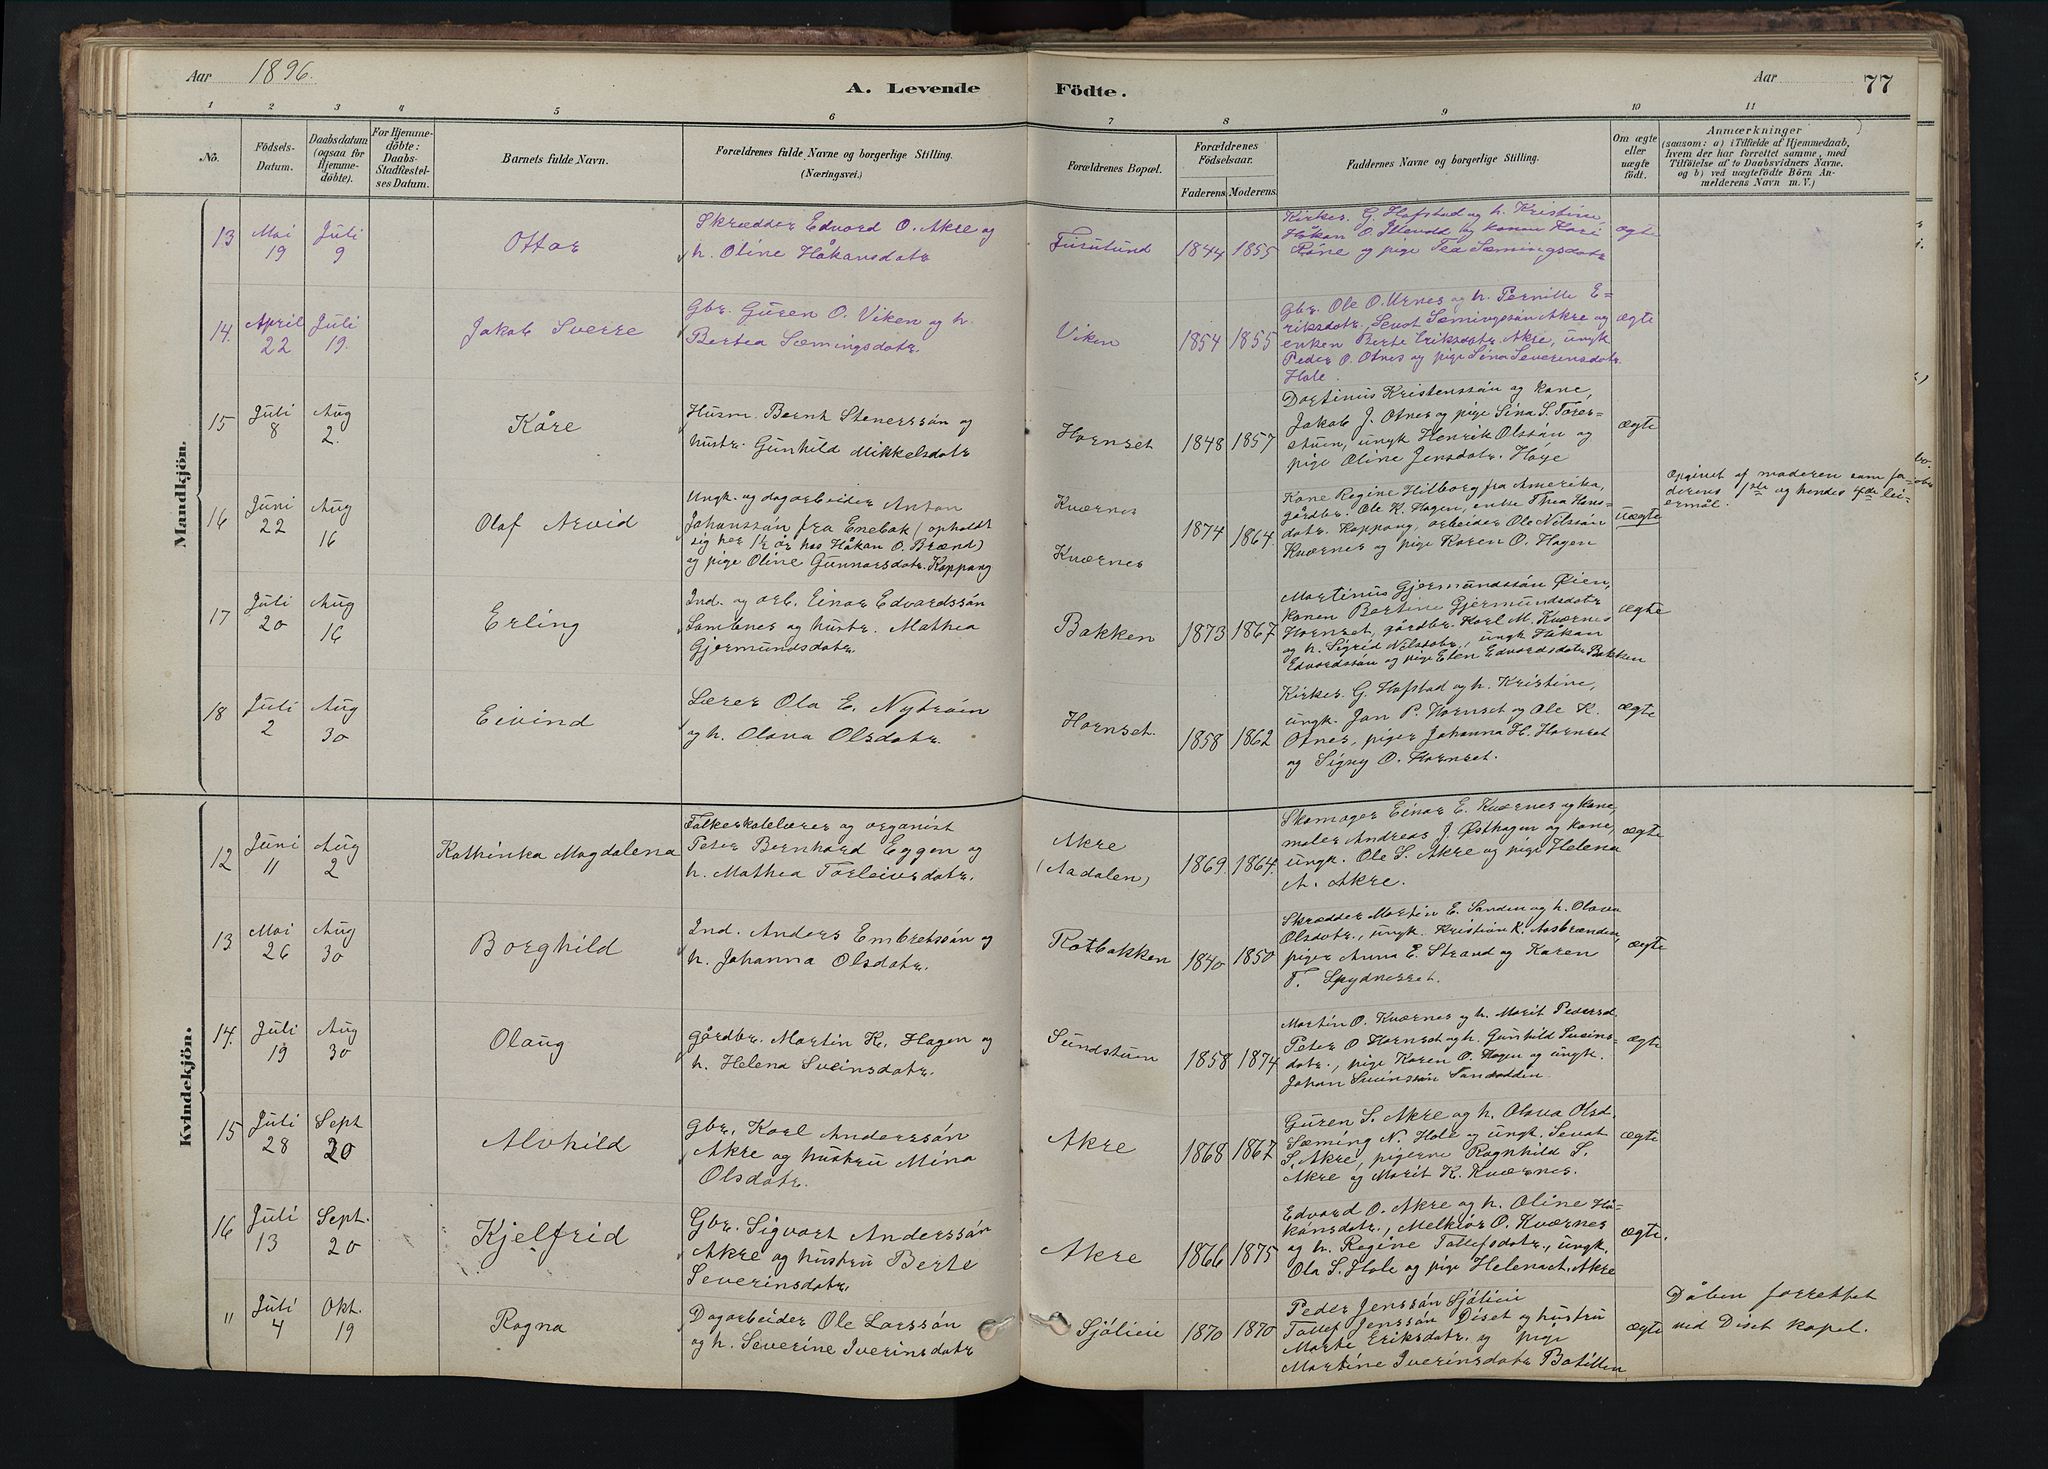 Aar 1896.
A. Levende Födte.
Aar 77
1 2 3 4 5 6 7 8 9 10 11
No.
Födsels-
Datum.
Daabsdatum
(ogsaa for
Hjemme-
döbte).
For Hjemme-
döbte:
Daabs-
Stadfæstel-
ses Datum.
Barnets fulde Navn.
Forældrenes fulde Navne og borgerlige Stilling.
(Næringsvei.)
Forældrenes Bopæl.
Forældrenes
Födselsaar.
Faderens. Moderens.
Faddernes Navne og borgerlige Stilling.
Om ægte
eller
uægte
födt.
Anmærkninger
(saasom: a) i Tilfælde af Hjemmedaab,
hvem der har forrettet samme, med
Tilföielse af to Daabsvidners Navne,
og b) ved uægtefödte Börn An-
melderens Navn m. V.)
Mandkjön.
13
Mai
19
Juli
9
Ottar
Skrædder Edvard O. Akre og
h. Oline Håkansdatr
Furulund
1844 1855
Kirkes. G. Hofstad og h. Kristine,
Håkan O. og konen Kari
og pige Tea Sæmingsdatr
ægte
14.
April
22
Juli
19.
Jakob Sverre
Gbr. Guren O. Viken og h.
Bertea Sæmingsdatr.
Viken
1854 1855
Gbr. Ole O. Urnes og h. Pernille E-
riksdatr., Sevat Sæmingssön Akre og
enken Berte Eriksdatr. Akre, ungk
Peder O. Otnes og pige Sina Severensdatr.
Hole.
ægte
15
Juli
8
Aug
2.
Kåre
Husm. Bernt Stenerssön og
hustr. Gunhild Mikkelsdatr
Hornset
1848 1857
Kristenssön og kone,
Jakob J. Otnes og pige Sina S. Tores-
stuen, ungk Henrik Olssön og
pige Oline Jensdatr. Høye
ægte
16
Juni
22
Aug
16
Olaf Arvid
Ungk. og dagarbeider Anton
Johanssön fra Enebak (opholdt
sig her 1½ år hos Håkan O. Brænd)
og pige Oline Gunnarsdatr. Koppang
Kværnes
Kværnes
1874 1864
Kone Regine Hilborg fra Amerika,
gårdbr. Ole K. Hagen, enke Thea Hans-
datr. Koppang, arbeider Ole Nilssön
Kværnes og pige Karen O. Hagen
uægte
Opgivet af moderen som fa-
derens 1ste og hendes 4de lei-
ermål.
17
Juli
20
Aug
16
Erling
Ind. og arb. Einar Edvardssön
Sambnes og hustr. Mathea
Gjermundsdatr.
Bakken
1873 1867
Martinus Gjermundssön Øien,
konen Bertine Gjermundsdatr
Hornset, gårdbr. Karl M. Kværnes
og h. Sigrid Nilsdatr., ungk Håkan
Edvardssön og pige Elen Edvardsdatr Bakken
ægte
18
Juli
2
Aug
30
Eivind
Lærer Ola E. Nytröen
og h. Olava Olsdatr.
Hornset.
1858 1862
Kirkes. G. Hofstad og h. Kristine,
ungk. Jan P. Hornset og Ole K.
Otnes, piger Johanna H. Hornset
og Signy O. Hornset.
ægte
Kvindekjön.
12
Juni
11
Aug
2
Kathinka Magdalena
Folkeskolelærer og organist
Peter Bernhard Eggen og
h. Mathea Torleivsdatr.
Akre
(Aadalen)
1869 1864.
Skomager Einar E. Kværnes og kone,
maler Andreas J. Østhagen og kone,
ungk. Ole S. Akre og pige Helena
A. Akre.
ægte
13
Mai
26
Aug
30
Borghild
Ind. Anders Embretssön og
h. Johanna Olsdatr.
Rotbakken
1840 1850
Skrædder Martin E. Sanden og h. Olava
Olsdatr., ungk. Kristian K. Aasbrænden,
piger Anna E. Strand og Karen
T. Spydnesset.
ægte
14.
Juli
19
Aug
30
Olaug
gårdbr. Martin K. Hagen og
h. Helena Sveinsdatr.
Sundstuen
1858 1874
Martin O. Kværnes og h. Marit Pedersd.
Peter O Hornset og h. Gunhild Sveins-
datr., pige Karen O. Hagen og ungk.
Johan Sveinssön Sandodden.
ægte
15
Juli
28
Sept
20
Alvhild
Gbr. Karl Anderssön
Akre og hustru Mina
Olsdatr.
Akre
1868 1867
Guren S. Akre og h. Olava Olsd.
Sæming N. Hole og ungk. Sevat
S. Akre, pigerne Ragnhild S.
Akre og Marit K. Kværnes.
ægte
16
Juli
13
Sept.
20
Kjelfrid
Gbr. Sigvart Anderssön
Akre og hustru Berte
Severinsdatr.
Akre
1866 1875
Edvard O. Akre og h. Oline Hå-
kansdatr., Melkiör O. Kværnes
og h. Regine Tollefsdatr., ungk.
Ola S. Hole og pige Helena A. Akre
ægte.
"
Juli
4
Okt.
19
Ragna
Dagarbeider Ole Larssön
og h. Severine Iverinsdatr
Sjöliein
1870 1870
Peder Jenssön Sjöliein
Tollef Jenssön Diset og hustru
Marte Eriksdatr. og pige
Martine Iverinsdatr
ægte
Dåben forrettet
ved Diset kapel.